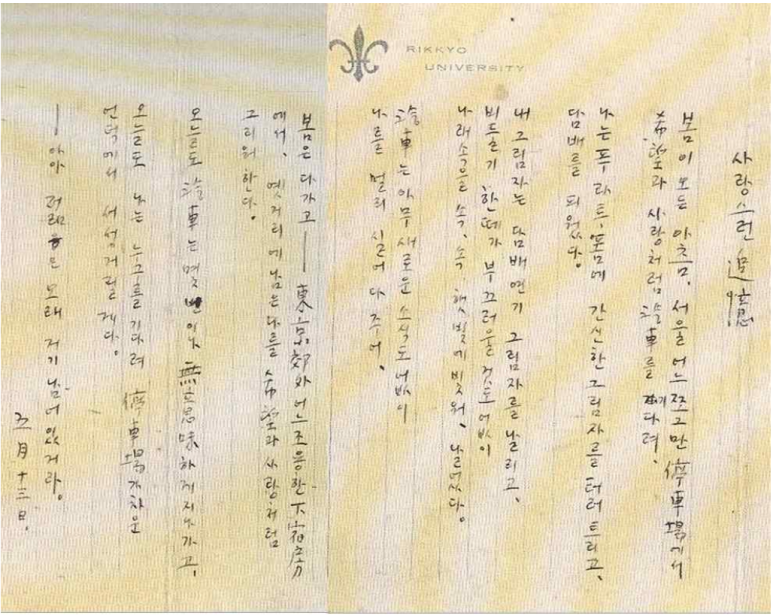 RIKKYO
UNIVERSITY
사랑스런 追憶
봄이 오든 아츰, 서울 어느 쪼그만 停車場에서
希望과 사랑처럼 汽車를 기다려,
나는 푸라트·폼에 간신한 그림자를 터러트리고,
담배를 피웠다.
내 그림자는 담배연기 그림자를 날리고,
비둘기 한떼가 부끄러울 것도 없이
나래속을 속, 속, 햇빛에 빛워, 날었다.
汽車는 아무 새로운 소식도 없이
나를 멀리 실어다 주어,
봄은 다가고 — 東京郊外 어느 조용한 下宿房
에서, 옛거리에 남은 나를 希望과 사랑처럼
그리워한다.
오늘도 汽車는 몇번이나 無意味하게 지나가고,
오늘도 나는 누구를 기다려 停車場 가차운
언덕에서 서성거릴 게다.
— 아아 젊음은 오래 거기 남어 있거라.
五月十三日.